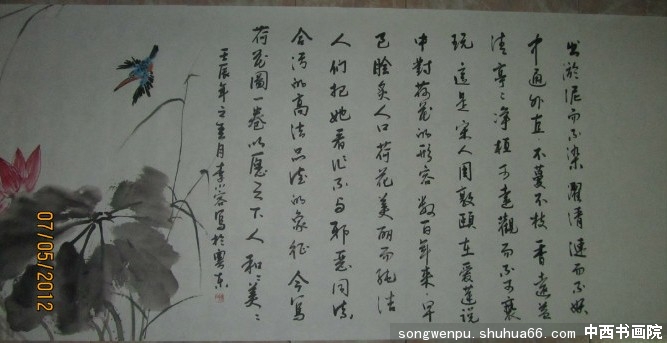 出淤泥而不染濯清涟而不妖
中通外直不蔓不枝香遠益
清亭々净植可遠觀而不可褻
玩這是宋人周敦頤在爱蓮説
中對荷花的形容数百年來早
已脍炙人口荷花美丽而純洁
人们把她看作不与邪惡同流
合污的高洁品德的象征今寫
荷花圖一卷以愿天下人和々美々
壬辰年之春月李小容寫於粤东
07/05/2012
songwenpu.shuhua66.com 中西书画院